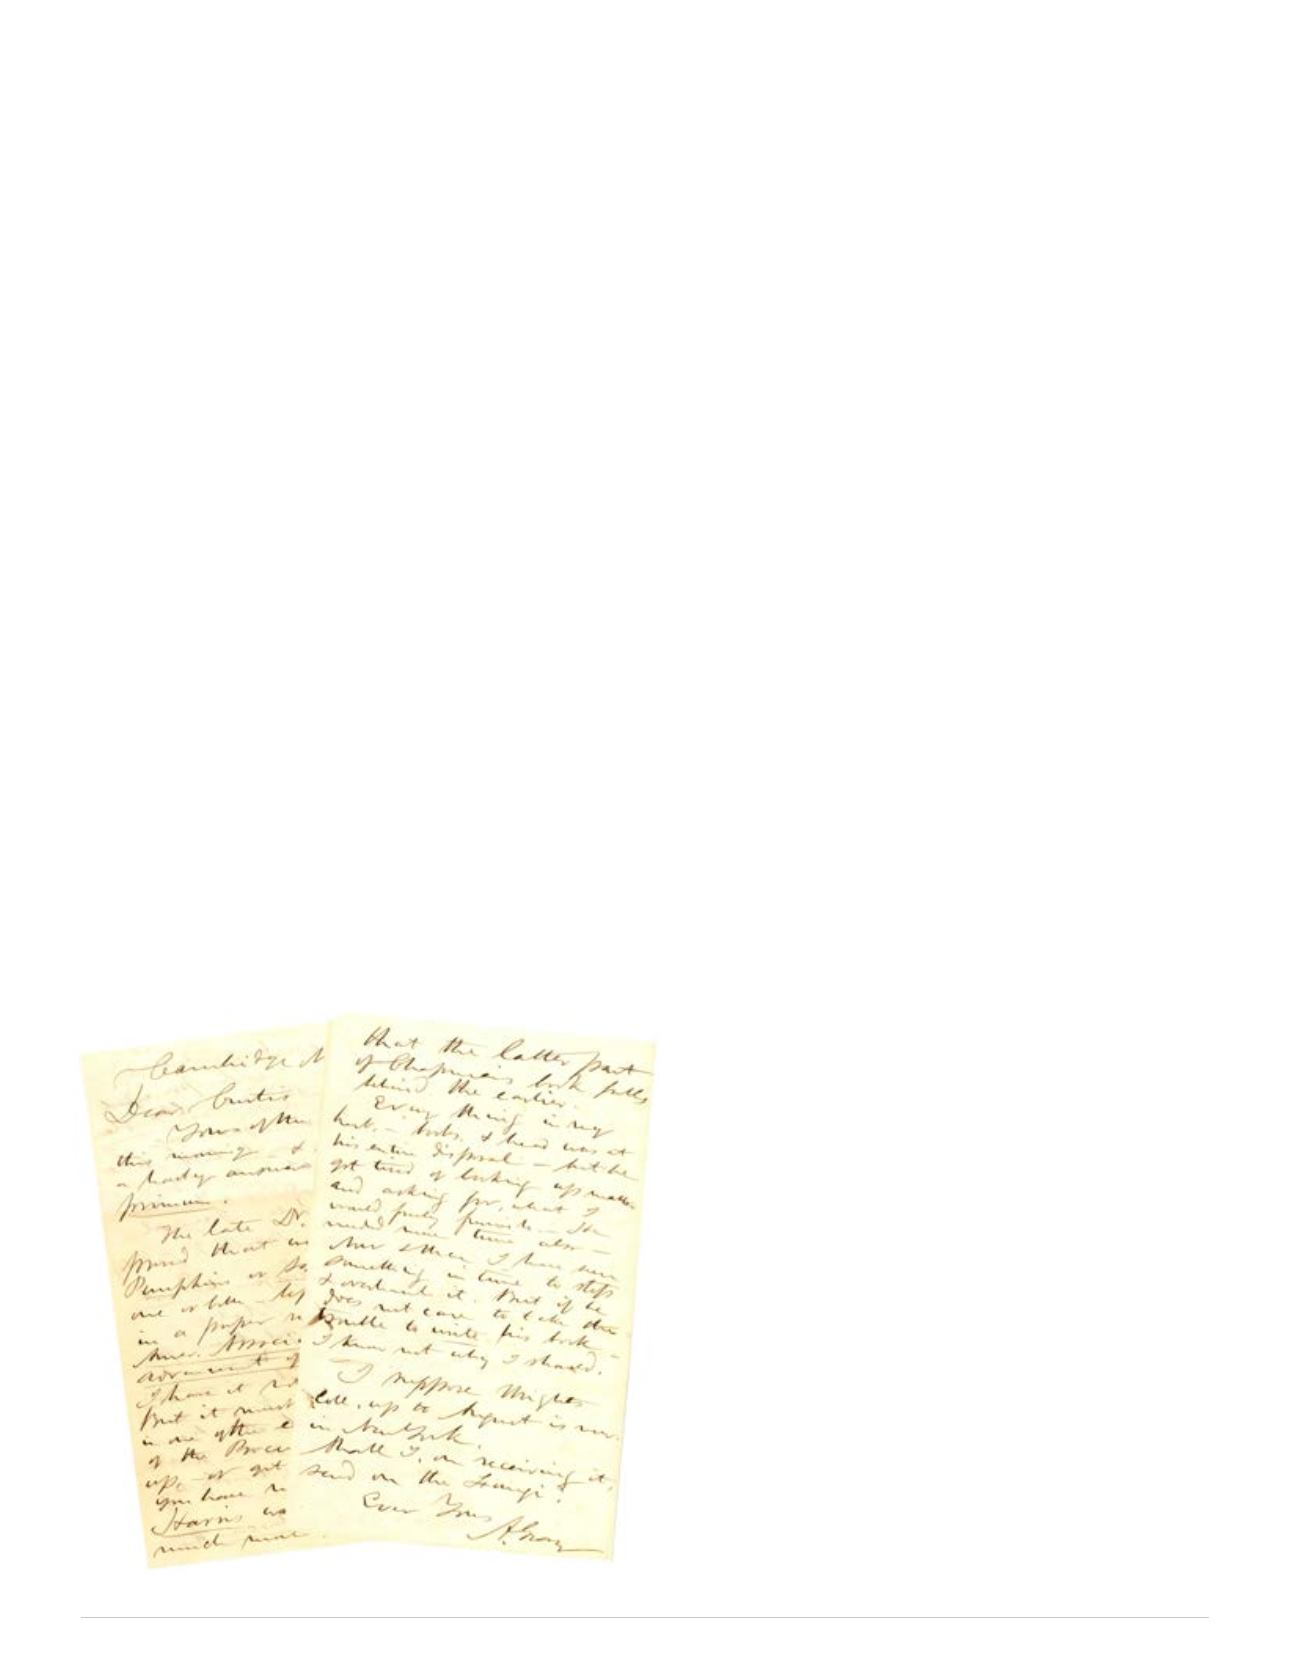 Cambridge
Dear Curtis
Yours of the
this morning &
a hasty answer
The late Dr.
proved that
Pumpkins or
one or both
in a paper
Amer. Associ
advancement of
I have it
But it must
in one of the
of the Proce
up, or get
you have
Harris
much more
that the latter part
of Chapman's book falls
behind the earlier.
Every thing in my
books, & head was at
his entire disposal — but he
got tired of looking up matters
and asking for, what I
would freely furnish. — He
needed more time also —
Now & then I have seen
something in time to stop
& overhaul it. But if he
does not care to take the
trouble to write his book —
I know not why I should.
I suppose Wright's
Coll. up to August is now
in New York.
Shall I, on receiving it,
send on the Fungi?
Ever Yours
A. Gray